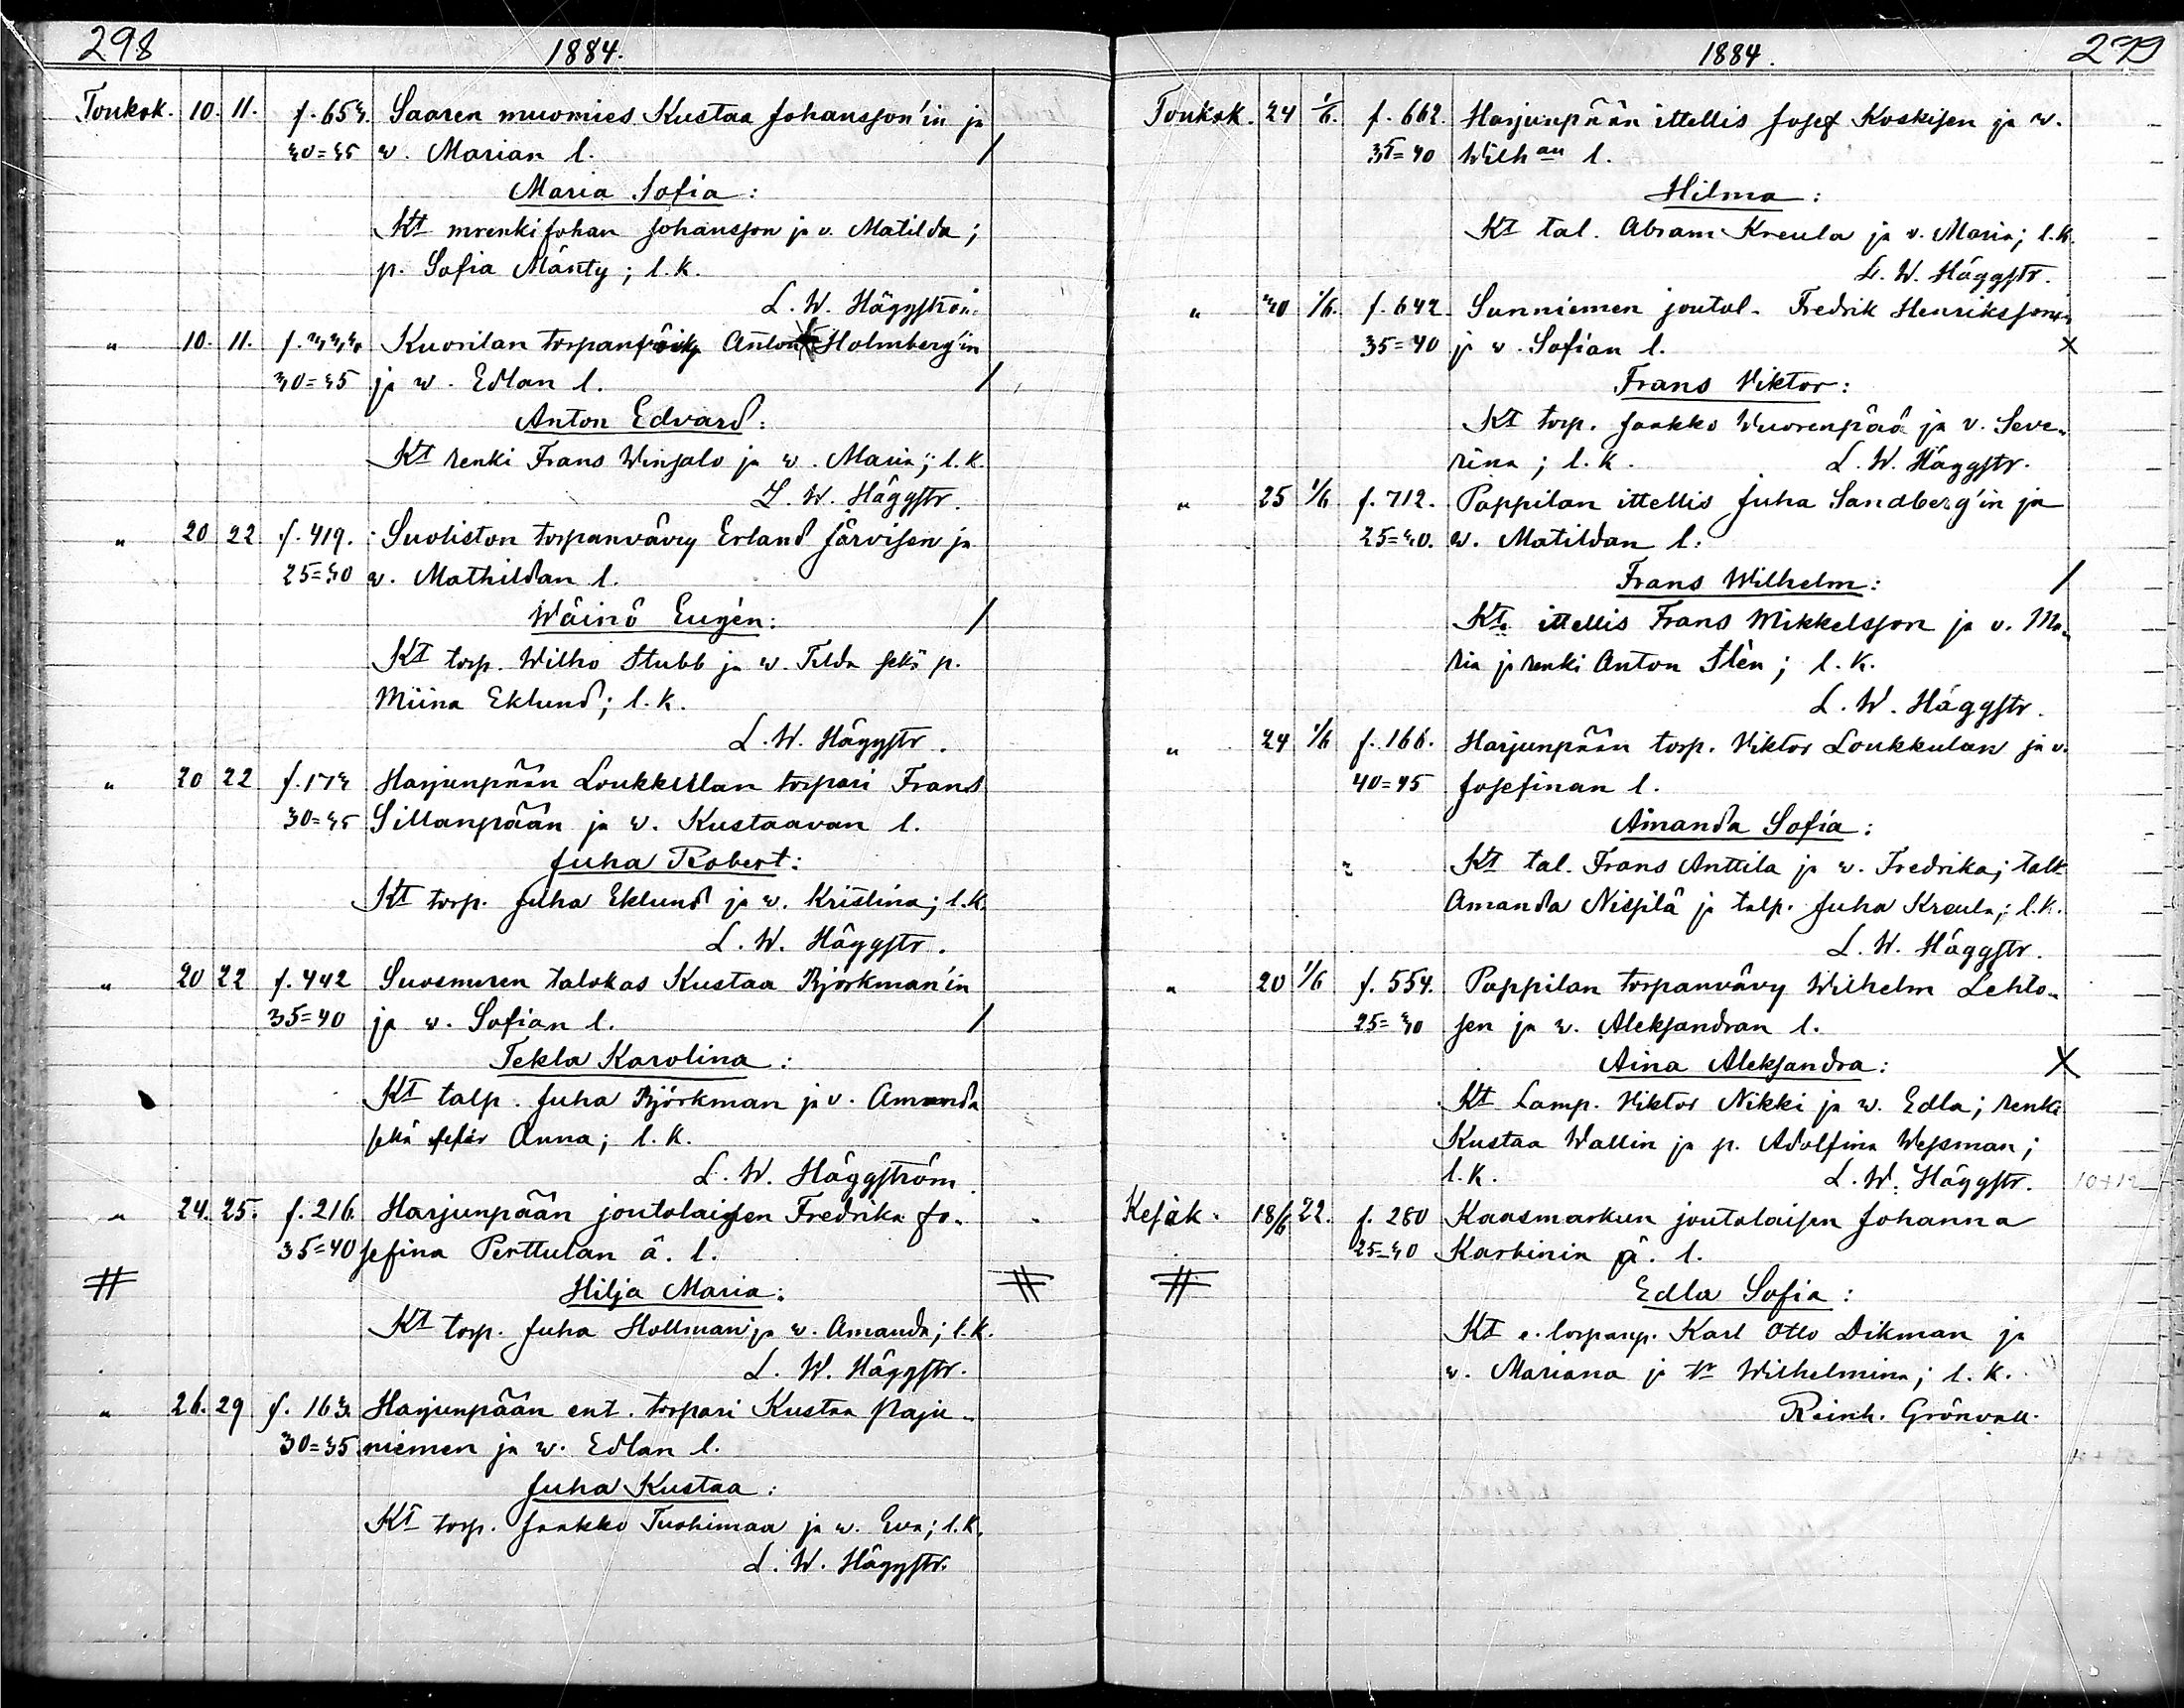 298
1884.
Toukok. 10. 11. f. 653. Saaren muomies Kustaa Johansson'in ja
30=35 w. Marian l. /
Maria Sofia:
Kt mrenki Johan Johansson ja v. Matilda;
p. Sofia Mänty; l. k.
L. W. Häggström.
" 10. 11. f. 333. Kuorilan torpanpoika Anton Holmberg'in
30=35 ja w. Edlan l. /
Anton Edvard:
Kt renki Frans Winsalo ja w. Maria; l. k.
L. W. Häggstr.
" 20 22 f. 419. Suoliston torpanvävy Erland Järvisen ja
25=30 w. Mathildan l.
Wäinö Eugén: /
Kt torp. Wilho Stubb ja w. Tilda sekä p.
Miina Eklund; l. k.
L. W. Häggstr.
" 20 22 f. 173 Harjunpään Loukkulan torpari Frans
30=35 Sillanpään ja w. Kustaavan l.
Juha Robert:
Kt torp. Juha Eklund ja w. Kristina; l. k.
L. W. Häggstr.
" 20 22 f. 442 Suosmeren talokas Kustaa Björkman'in
35=40 ja w. Sofian l. /
Tekla Karolina:
Kt talp. Juha Björkman ja v. Amanda
sekä Anna; l. k.
L. W. Häggström.
" 24. 25. f. 216. Harjunpään joutolaisen Fredrika Jo-
35=40 sefina Perttulan ä. l.
# Hilja Maria: #
Kt torp. Juha Hollman ja w. Amanda; l. k.
L. W. Häggstr.
" 26. 29 f. 163. Harjunpään ent. torpari Kustaa Paju-
30=35 niemen ja w. Edlan l.
Juha Kustaa:
Kt torp. Jaakko Tuohimaa ja w. Eva; l. k.
L. W. Häggstr.
1884.
Toukok. 24 1/6. f. 662. Harjunpään ittellis Josef Koskisen ja w.
35=40 Wilhan l.
Hilma:
Kt tal. Abram Kreula ja v. Maria; l. k.
L. W. Häggstr.
" 30 1/6. f. 642. Sunniemen joutol. Fredrik Henrikssonin
35=40 ja w. Sofian l. X
Frans Viktor:
Kt torp. Jaakko Wuorenpää ja v. Seve-
rina; l. k. L. W. Häggstr.
" 25 1/6 f. 712. Pappilan ittellis Juha Sandberg'in ja
25=30. w. Matildan l.
Frans Wilhelm: /
Kt. ittellis Frans Mikkelsson ja v. Ma-
ria ja renki Anton Slén; l. k.
L. W. Häggstr.
" 24 1/6 f. 166. Harjunpään torp. Viktor Loukkulan ja v.
40=45 Josefinan l.
Amanda Sofia:
Kt tal. Frans Anttila ja w. Fredrika; talt
Amanda Nispilä ja talp. Juha Kreula; l. k.
L. W. Häggstr.
" 20 1/6 f. 554. Pappilan torpanvävy Wilhelm Lehto-
25=30 sen ja w. Aleksandran l.
Aina Aleksandra: X
Kt Lamp. Viktor Nikki ja w. Edla; renki
Kustaa Wallin ja p. Adolfina Wessman;
l. k. L. W. Häggstr.
Kesäk. 18/6 22. f. 280 Kaasmarkun joutolaisen Johanna
25=30 Karhinin ä. l.
# Edla Sofia:
Kt e. torpanp. Karl Otto Dikman ja
w. Mariana ja Wilhelmina; l. k.
Reinh. Grönvall.